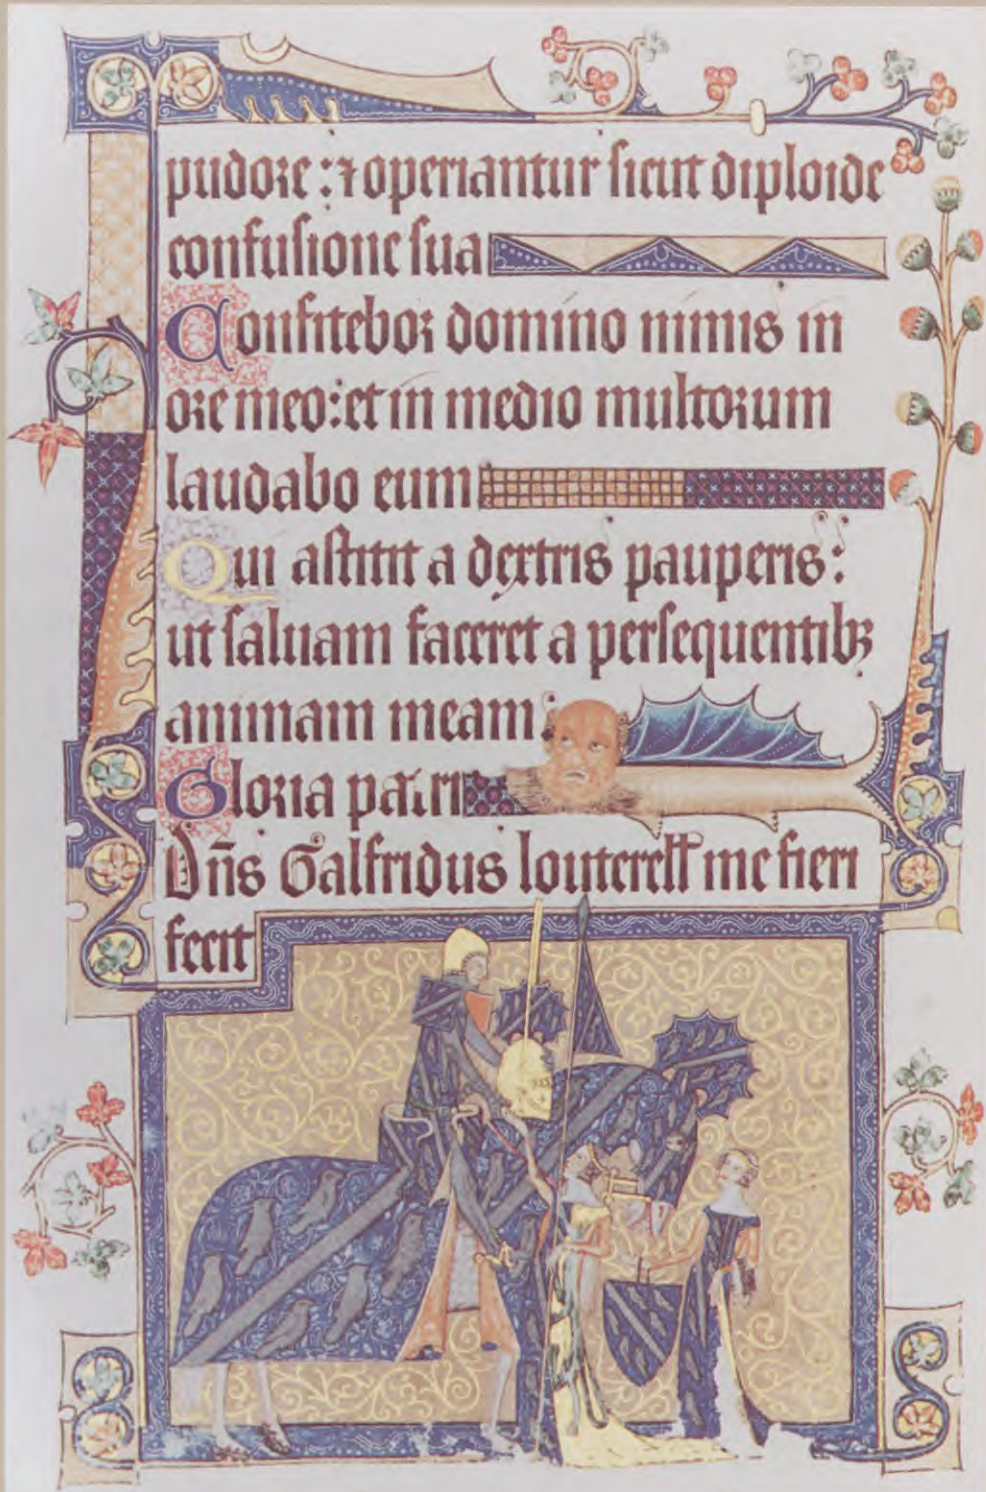 pudore : ⁊ operiantur sicut diploide
confusione sua
Confitebor domino nimis in
ore meo : et in medio multorum
laudabo eum
Qui astitit a dextris pauperis :
ut saluam faceret a persequentibꝫ
animam meam .
Gloria patri
Dn̄s Galfridus louterell me fieri
fecit